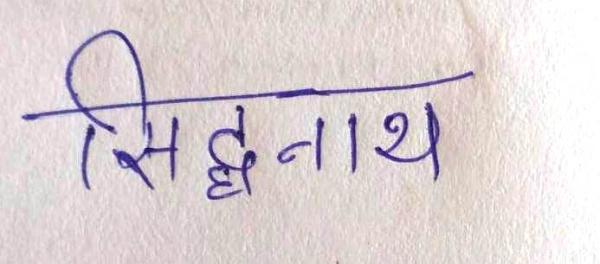 सिद्धनाथ